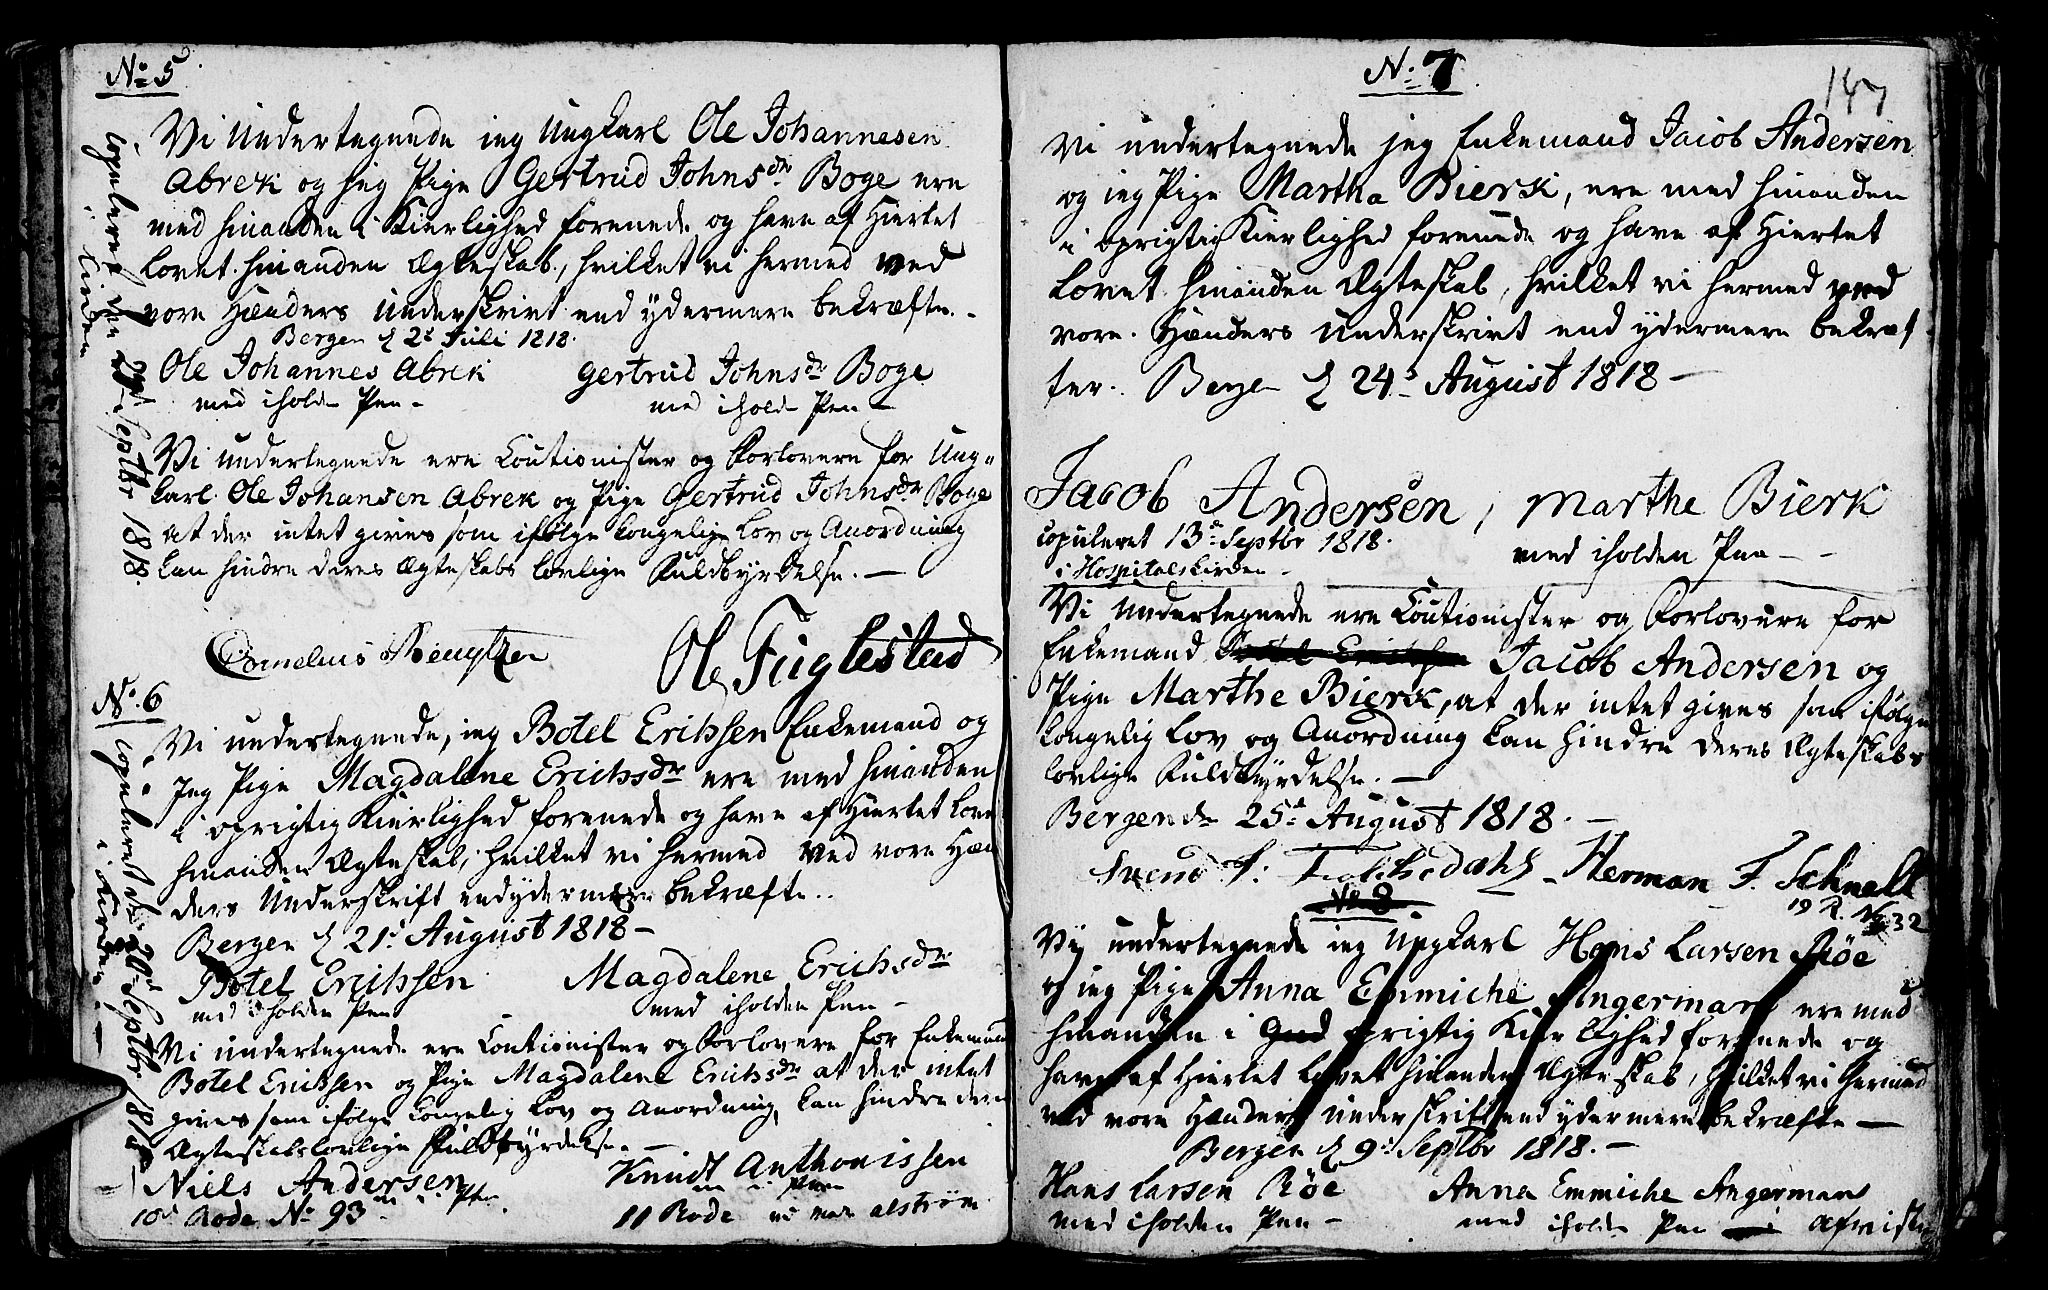 No 5
Vi Undertegnede jeg Ungkarl Ole Johannesen
Abrek og jeg Pige Gertrud Johnsdr Boge ere
med hinanden i Kierlighed forenede og have af Hiertet
lovet hinanden Ægteskab, hvilket vi hermed ved
vore Hænders Underskrivt end ydermere bekræfte.
Bergen d 2d Juli 1818.
Ole Johannes Abrek
med iholden Pen -
Gertrud Johnsdr Boge
med iholden Pen -
Vi undertegnede ere Coutionister og Forlovere for Ung=
karl Ole Johansen Abrek og Pige Gertrud Johnsdr Boge
at der intet gives som ifølge kongelig Lov og Anordning
kan hindre deres Ægteskabs lovlige Fuldbyrdelse. —
Cornelius
Ole Fuglestad
copuleret den Septbr 1818.
i Kirken
No 6
Vi undertegnede, jeg Botel Erichsen Enkemand og
Jeg Pige Magdalene Erichsdr ere med hinanden
i oprigtig Kierlighed forenede og have af Hiertet lovet
hinanden Ægteskab, hvilket vi hermed ved vore Hæn
ders Underskrift endydermere bekræfte.
Bergen d 21d August 1818 -
Botel Erichsen
med iholden Pen
Magdalene Erichsdr
med iholden Pen -
Vi undertegnede ere Coutionister og Forlovere for Enkemand
Botel Erichsen og Pige Magdalene Erichsdr at der intet
gives som ifølge kongelig Lov og Anordning, kan hindre deres
Ægteskabs lovlige Fuldbyrdelse. —
Niels Andersen
m i Pen
10de Rode No 93
Knudt Anthonissen
m i Pen
11 Rode
copuleret d 20d Septbr 1818
i Kirken
No 7
147
Vi undertegnede jeg Enkemand Jacob Andersen
og jeg Pige Martha Bierk, ere med hinanden
i oprigtig Kierlighed forenede og have af Hiertet
Lovet hinanden Ægteskab, hvilket vi hermed ved
vore Hænders Underskrivt end ydermere bekræf
ter. Bergen d 24d August 1818 —
Jacob Andersen, Marthe Bierk
med iholden Pen -
copuleret 13de Septbr 1818.
i Hospitalskirken -
Vi Undertegnede ere Coutionister og Forlovere for
Enkemand Botel Erichsen Jacob Andersen og
Pige Marthe Bierk, at der intet gives som ifølge
kongelig Lov og Anordning kan hindre deres Ægteskabs
lovlige Fuldbyrdelse. —
Bergen d 25d August 1818. —
Herman F. Schnell
19 R. No 32
No 8
Vi undertegnede jeg Ungkarl Hans Larsen Røe
og jeg Pige Anna Emmiche Angermans ere med
hinanden i Gud oprigtig Kierlighed forenede og
have af Hiertet Lovet hinanden Ægteskab, hvilket vi hermed
ved vore Hænders Underskrift end ydermere bekræfte —
Bergen d 9d Septbr 1818. —
Hans Larsen Røe
med iholden Pen -
Anna Emmiche Angermans
med iholden Pen